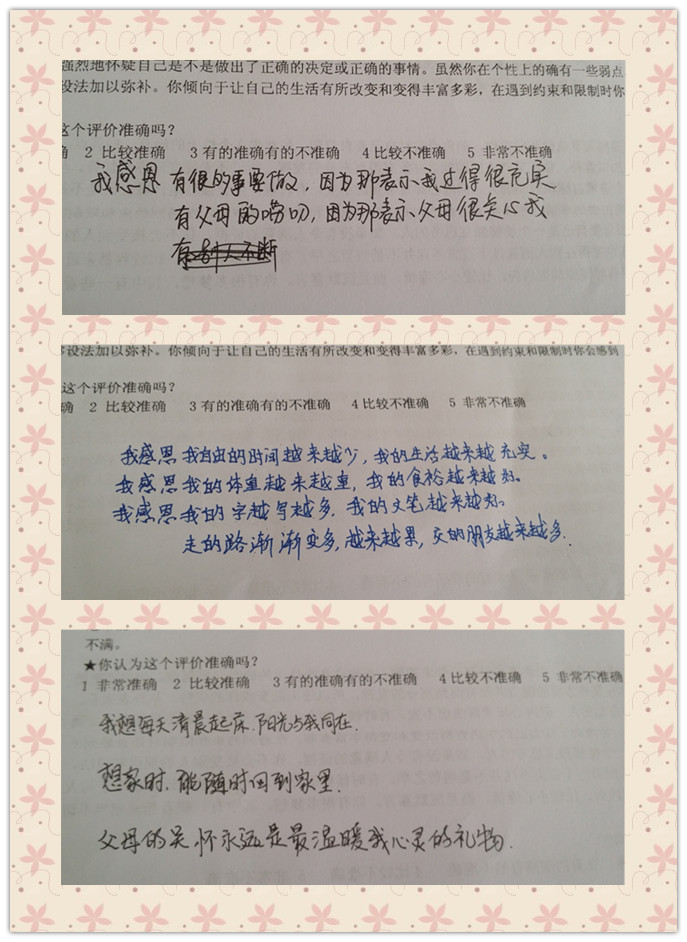 强烈地怀疑自己是不是做出了正确的决定或正确的事情。虽然你在个性上的确有一些弱点
设法加以弥补。你倾向于让自己的生活有所改变和变得丰富多彩，在遇到约束和限制时你
这个评价准确吗？
确 2 比较准确 3 有的准确有的不准确 4 比较不准确 5 非常不准确
我感恩 有很的事要做，因为那表示我过得很充实
有父母的唠叨，因为那表示父母很关心我
设法加以弥补。你倾向于让自己的生活有所改变和变得丰富多彩，在遇到约束和限制时你会感到
这个评价准确吗？
确 2 比较准确 3 有的准确有的不准确 4 比较不准确 5 非常不准确
我感恩我自由的时间越来越少，我的生活越来越充实。
我感恩我的体重越来越重，我的食粮越来越好。
我感恩我的字越写越多，我的文笔越来越好。
走的路渐渐变多，越来越累，交的朋友越来越多.
不满。
★你认为这个评价准确吗？
1 非常准确 2 比较准确 3 有的准确有的不准确 4 比较不准确 5 非常不准确
我想每天清晨起床,阳光与我同在.
想家时,能随时回到家里.
父母的关怀永远是最温暖我心灵的礼物.